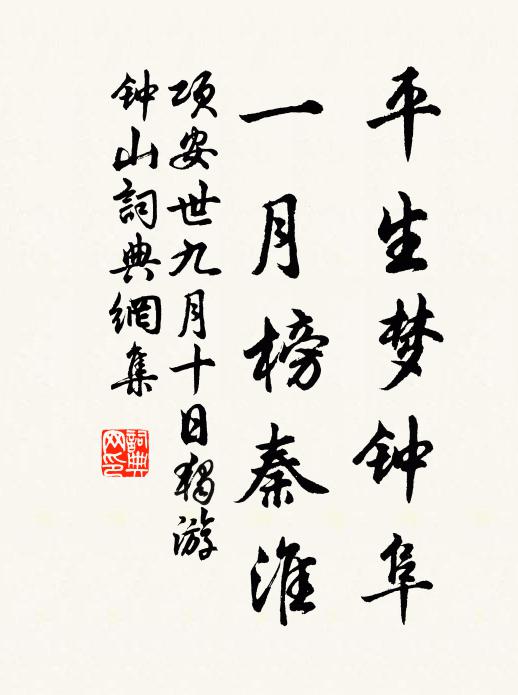 平生梦钟阜
一月榜秦淮
项安世九月十日独游
钟山詞典網集
詞典网印